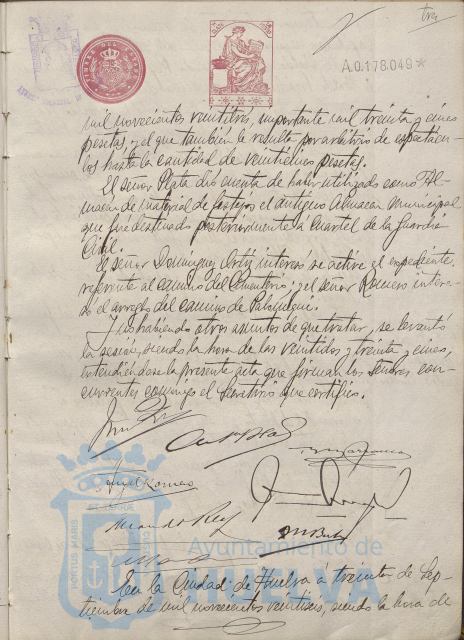 tres
A.0.178.049*
mil novecientos veintitres, importante mil treinta y cinco
pesetas, y el que tambien le resulta por arbitrio de espectácu-
los hasta la cantidad de veinticinco pesetas.
El señor Plata dió cuenta de haber utilizado como Al-
macen de material de festejos el antiguo Almacen Municipal
que fué destinado posteriormente á Cuartel de la Guardia
Civil.
El señor Dominguez Ortiz interesó se active el expediente
referente al camino del Cementerio, y el señor Romero intere-
só el arreglo del camino de
Y no habiendo otros asuntos de que tratar, se levantó
la sesión, siendo la hora de las veintidos y treinta y cinco,
extendiendose la presente acta que firman los señores con-
currentes conmigo el Secretario que certifico.
Ayuntamiento de
HUELVA
PORTUS MARIS
En la Ciudad de Huelva á treinta de Sep-
tiembre de mil novecientos veintiseis, siendo la hora de